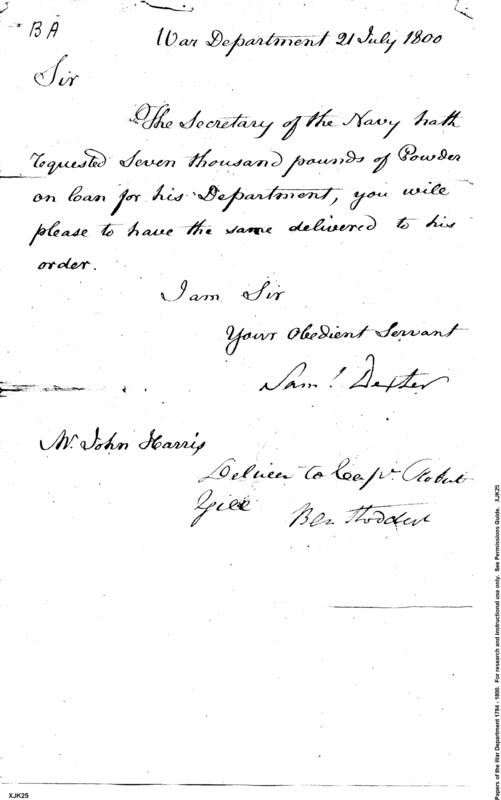 BA
War Department 21 July 1800
Sir
The Secretary of the Navy hath
requested Seven thousand pounds of Powder
on loan for his Department, you will
please to have the same delivered to his
order.
I am Sir
Your Obedient Servant
Sam! Dexter
Mr. John Harris
Deliver to Capt Robert
Gill
Ben Stoddert
XJK25
Papers of the War Department 1784 - 1800. For research and instructional use only. See Permissions Guide. XJK25